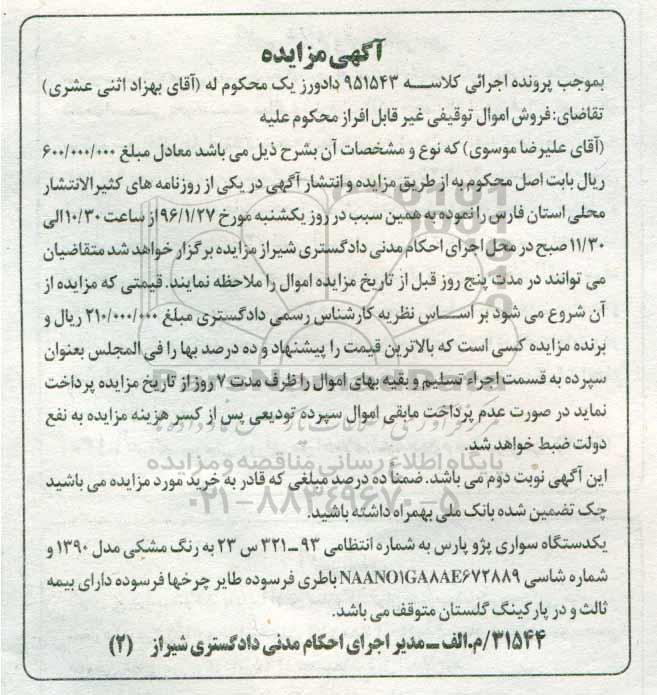 آگهی مزایده
بموجب پرونده اجرائی کلاسه ۹۵۱۵۴۳ دادورز یک محکوم له (آقای بهزاد اثنی عشری)
تقاضای: فروش اموال توقیفی غیر قابل افراز محکوم علیه
(آقای علیرضا موسوی) که نوع و مشخصات آن بشرح ذیل می باشد معادل مبلغ ۶۰۰/۰۰۰/۰۰۰
ریال بابت اصل محکوم به از طریق مزایده و انتشار آگهی در یکی از روزنامه های کثیرالانتشار
محلی استان فارس را نموده به همین سبب در روز یکشنبه مورخ ۹۶/۱/۲۷ از ساعت ۱۰/۳۰ الی
۱۱/۳۰ صبح در محل اجرای احکام مدنی دادگستری شیراز مزایده برگزار خواهد شد متقاضیان
می توانند در مدت پنج روز قبل از تاریخ مزایده اموال را ملاحظه نمایند. قیمتی که مزایده از
آن شروع می شود بر اساس نظریه کارشناس رسمی دادگستری مبلغ ۲۱۰/۰۰۰/۰۰۰ ریال و
برنده مزایده کسی است که بالاترین قیمت را پیشنهاد و ده درصد بها را فی المجلس بعنوان
سپرده به قسمت اجراء تسلیم و بقیه بهای اموال را ظرف مدت ۷ روز از تاریخ مزایده پرداخت
نماید در صورت عدم پرداخت مابقی اموال سپرده تودیعی پس از کسر هزینه مزایده به نفع
دولت ضبط خواهد شد.
پایگاه اطلاع رسانی مناقصه و مزایده
این آگهی نوبت دوم می باشد. ضمناً ده درصد مبلغی که قادر به خرید مورد مزایده می باشید
۰۲۱-۸۸۳۴۹۶۷۰-۵
چک تضمین شده بانک ملی بهمراه داشته باشید.
یکدستگاه سواری پژو پارس به شماره انتظامی ۹۳-۳۲۱ س ۲۳ به رنگ مشکی مدل ۱۳۹۰ و
شماره شاسی NAANO۱GA۸AE۶۷۲۸۸۹ باطری فرسوده طایر چرخها فرسوده دارای بیمه
ثالث و در پارکینگ گلستان متوقف می باشد.
۳۱۵۴۴/م.الف - مدیر اجرای احکام مدنی دادگستری شیراز (۲)